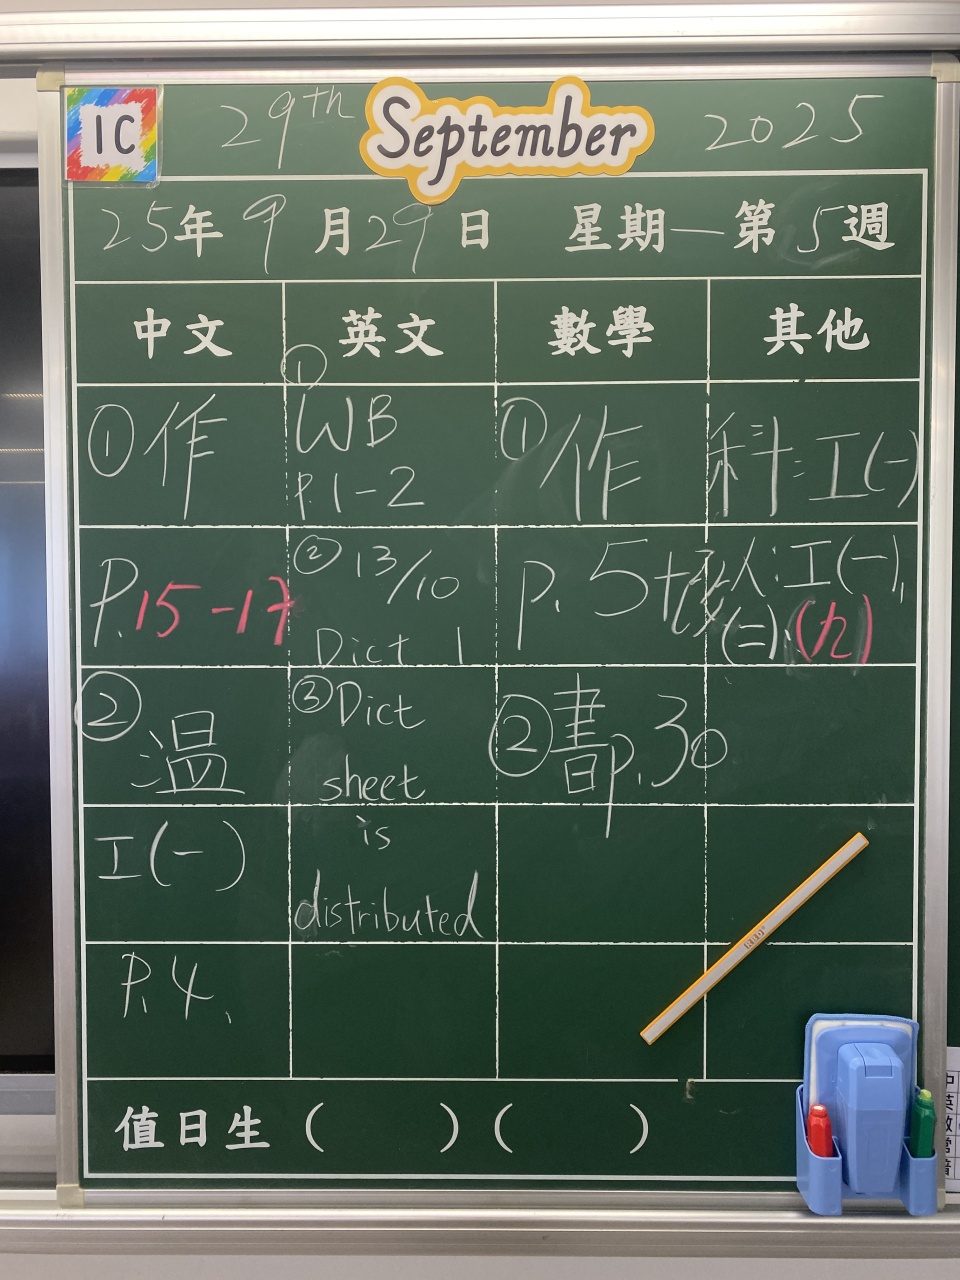 1C
29th September 2025
25年9月29日 星期一 第5週
中文 英文 數學 其他
①作
P.15-17
②溫
工(一)
P.4.
①
WB
P.1-2
②13/10
Dict 1
③Dict
sheet
is
distributed
①作
p.5+改
②書p.30
科:工(一)
人:工(一),
(二).(九)
值日生( )( )